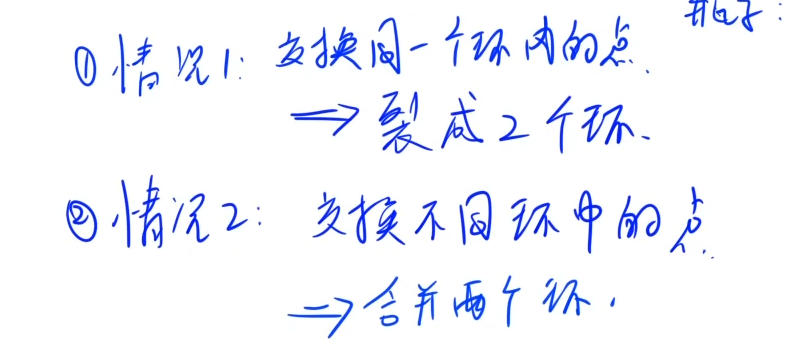 瓶子:
①情况1: 交换同一个环内的点.
⇒ 裂成2个环.
②情况2: 交换不同环中的点.
⇒ 合并两个环.